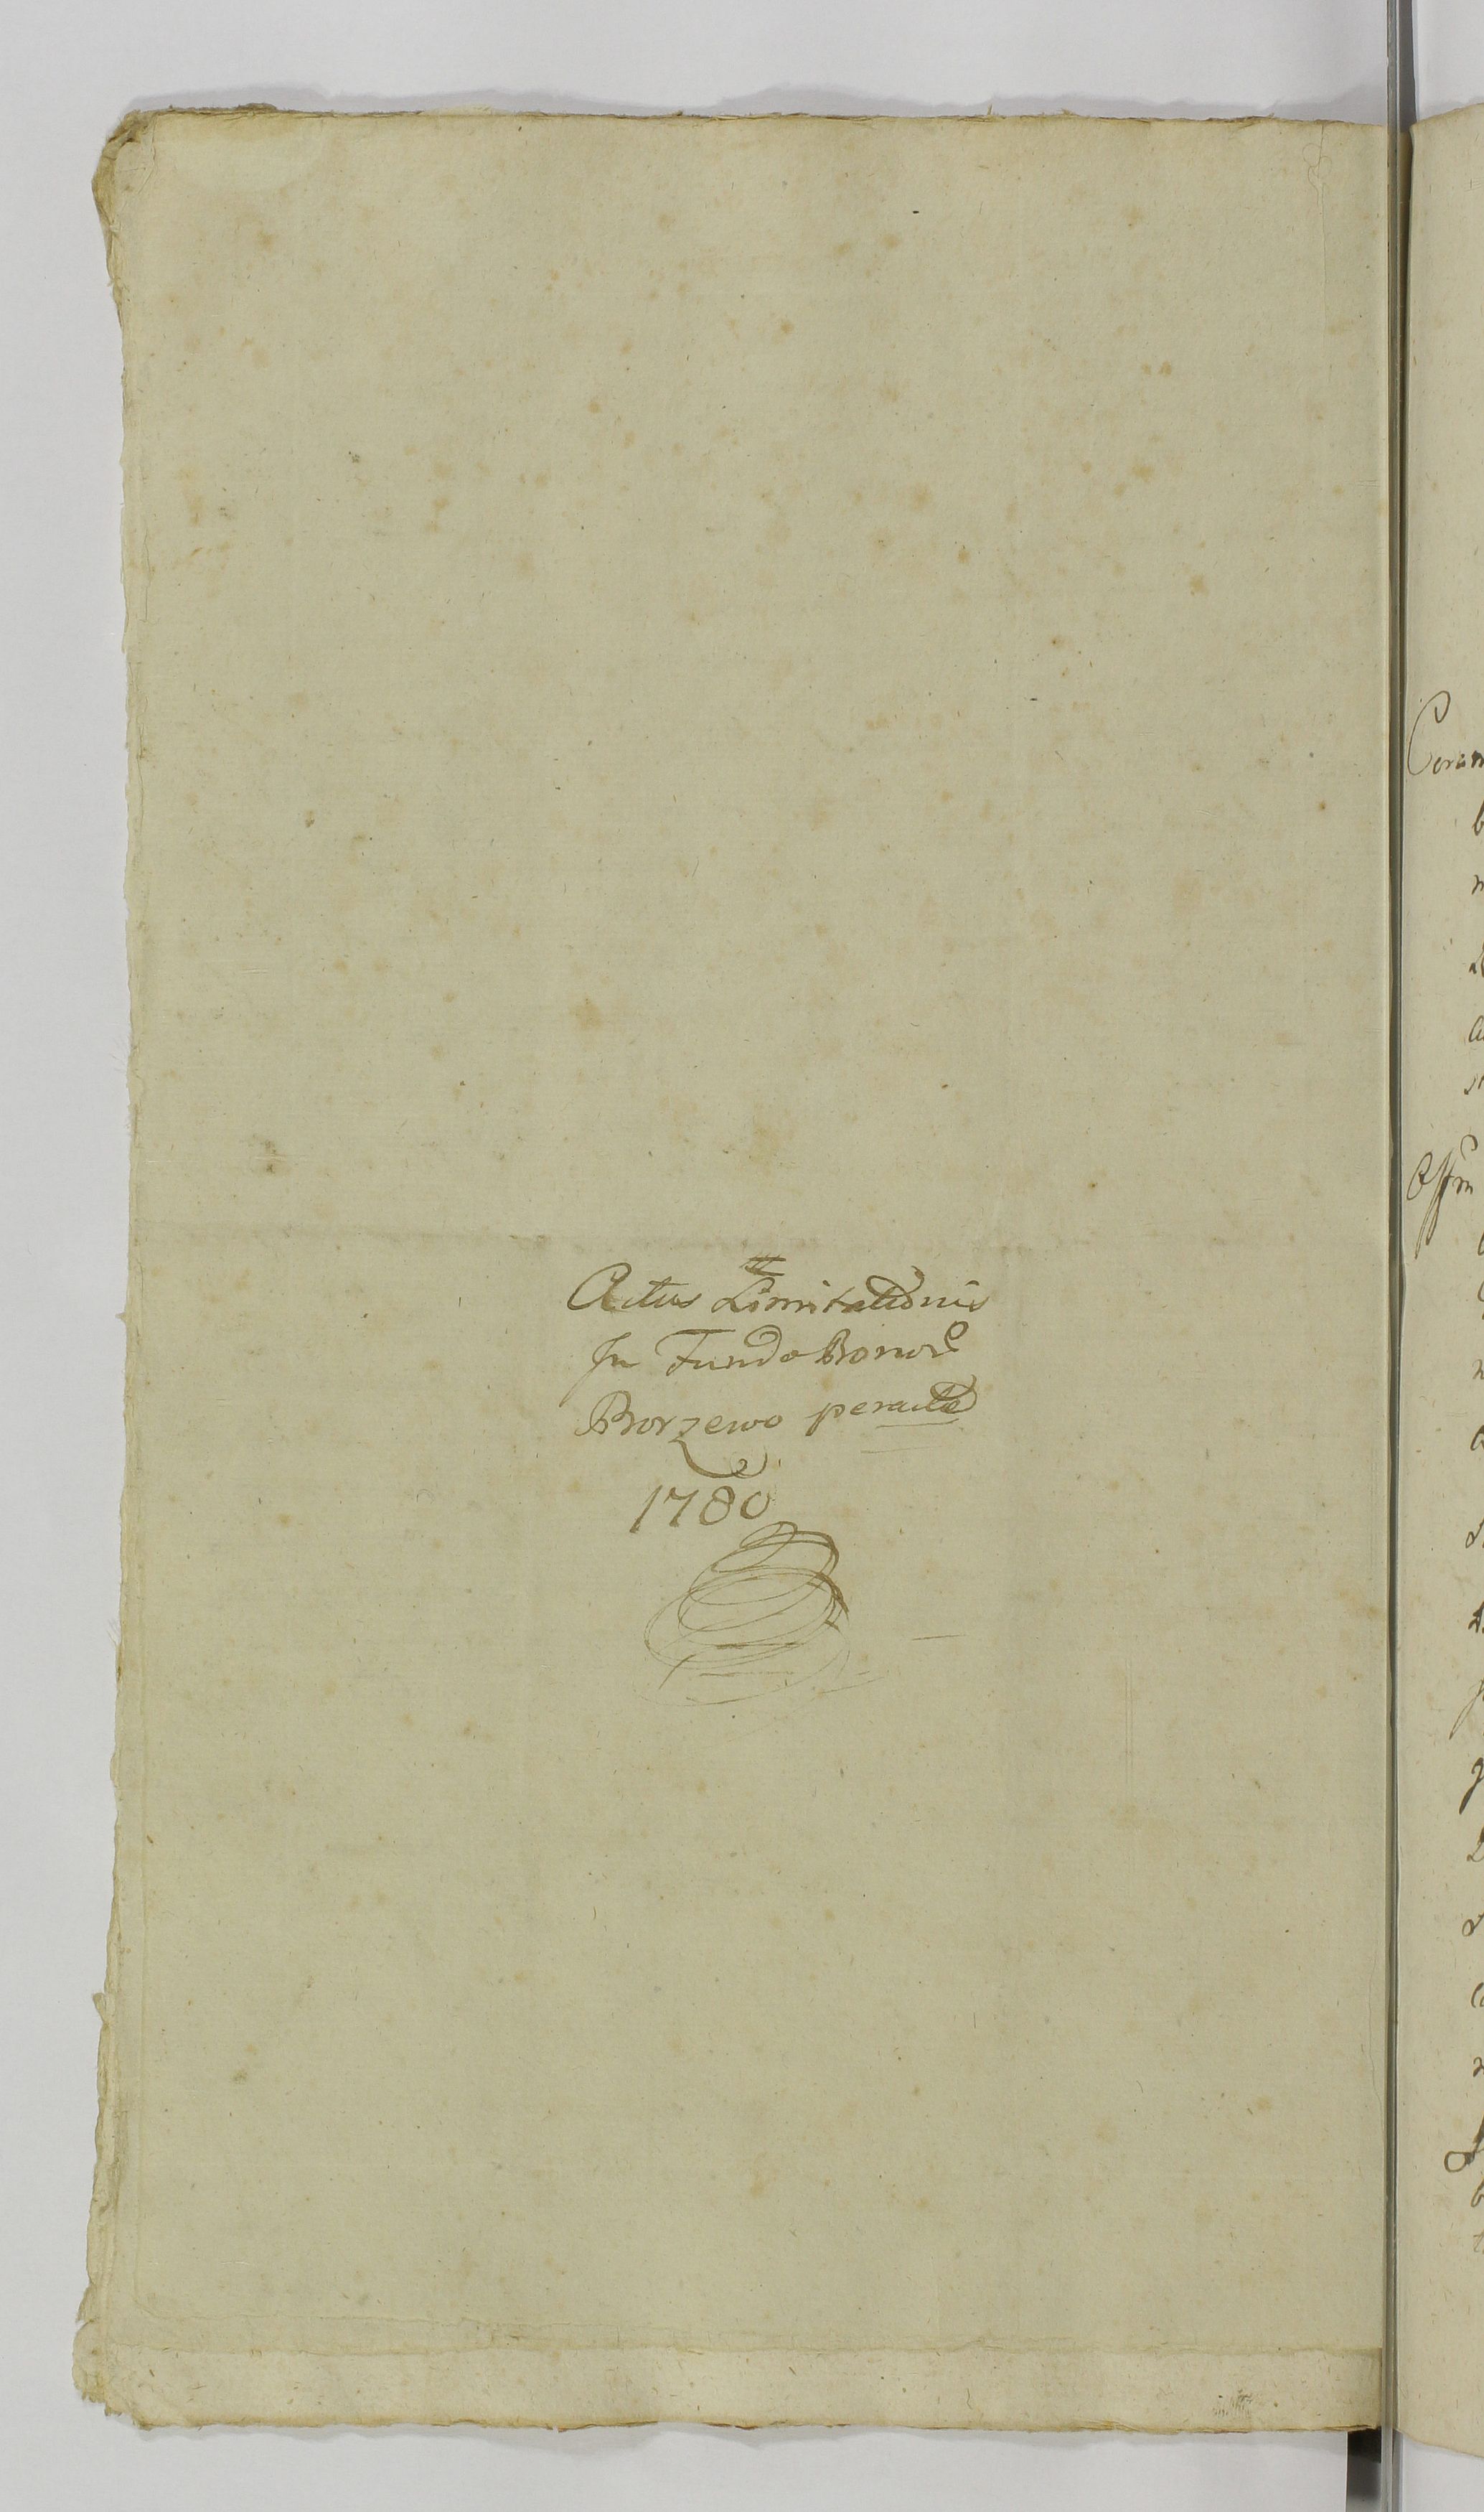 Actus Limitationis
In Fundo Bonor
Borzewo peracta
1780